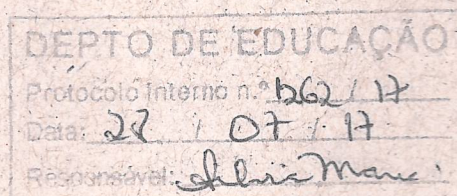 DEPTO DE EDUCAÇÃO
Protocolo Interno n.º 1262 / 17
Data: 28 / 07 / 17
Responsável: Silvia Mara